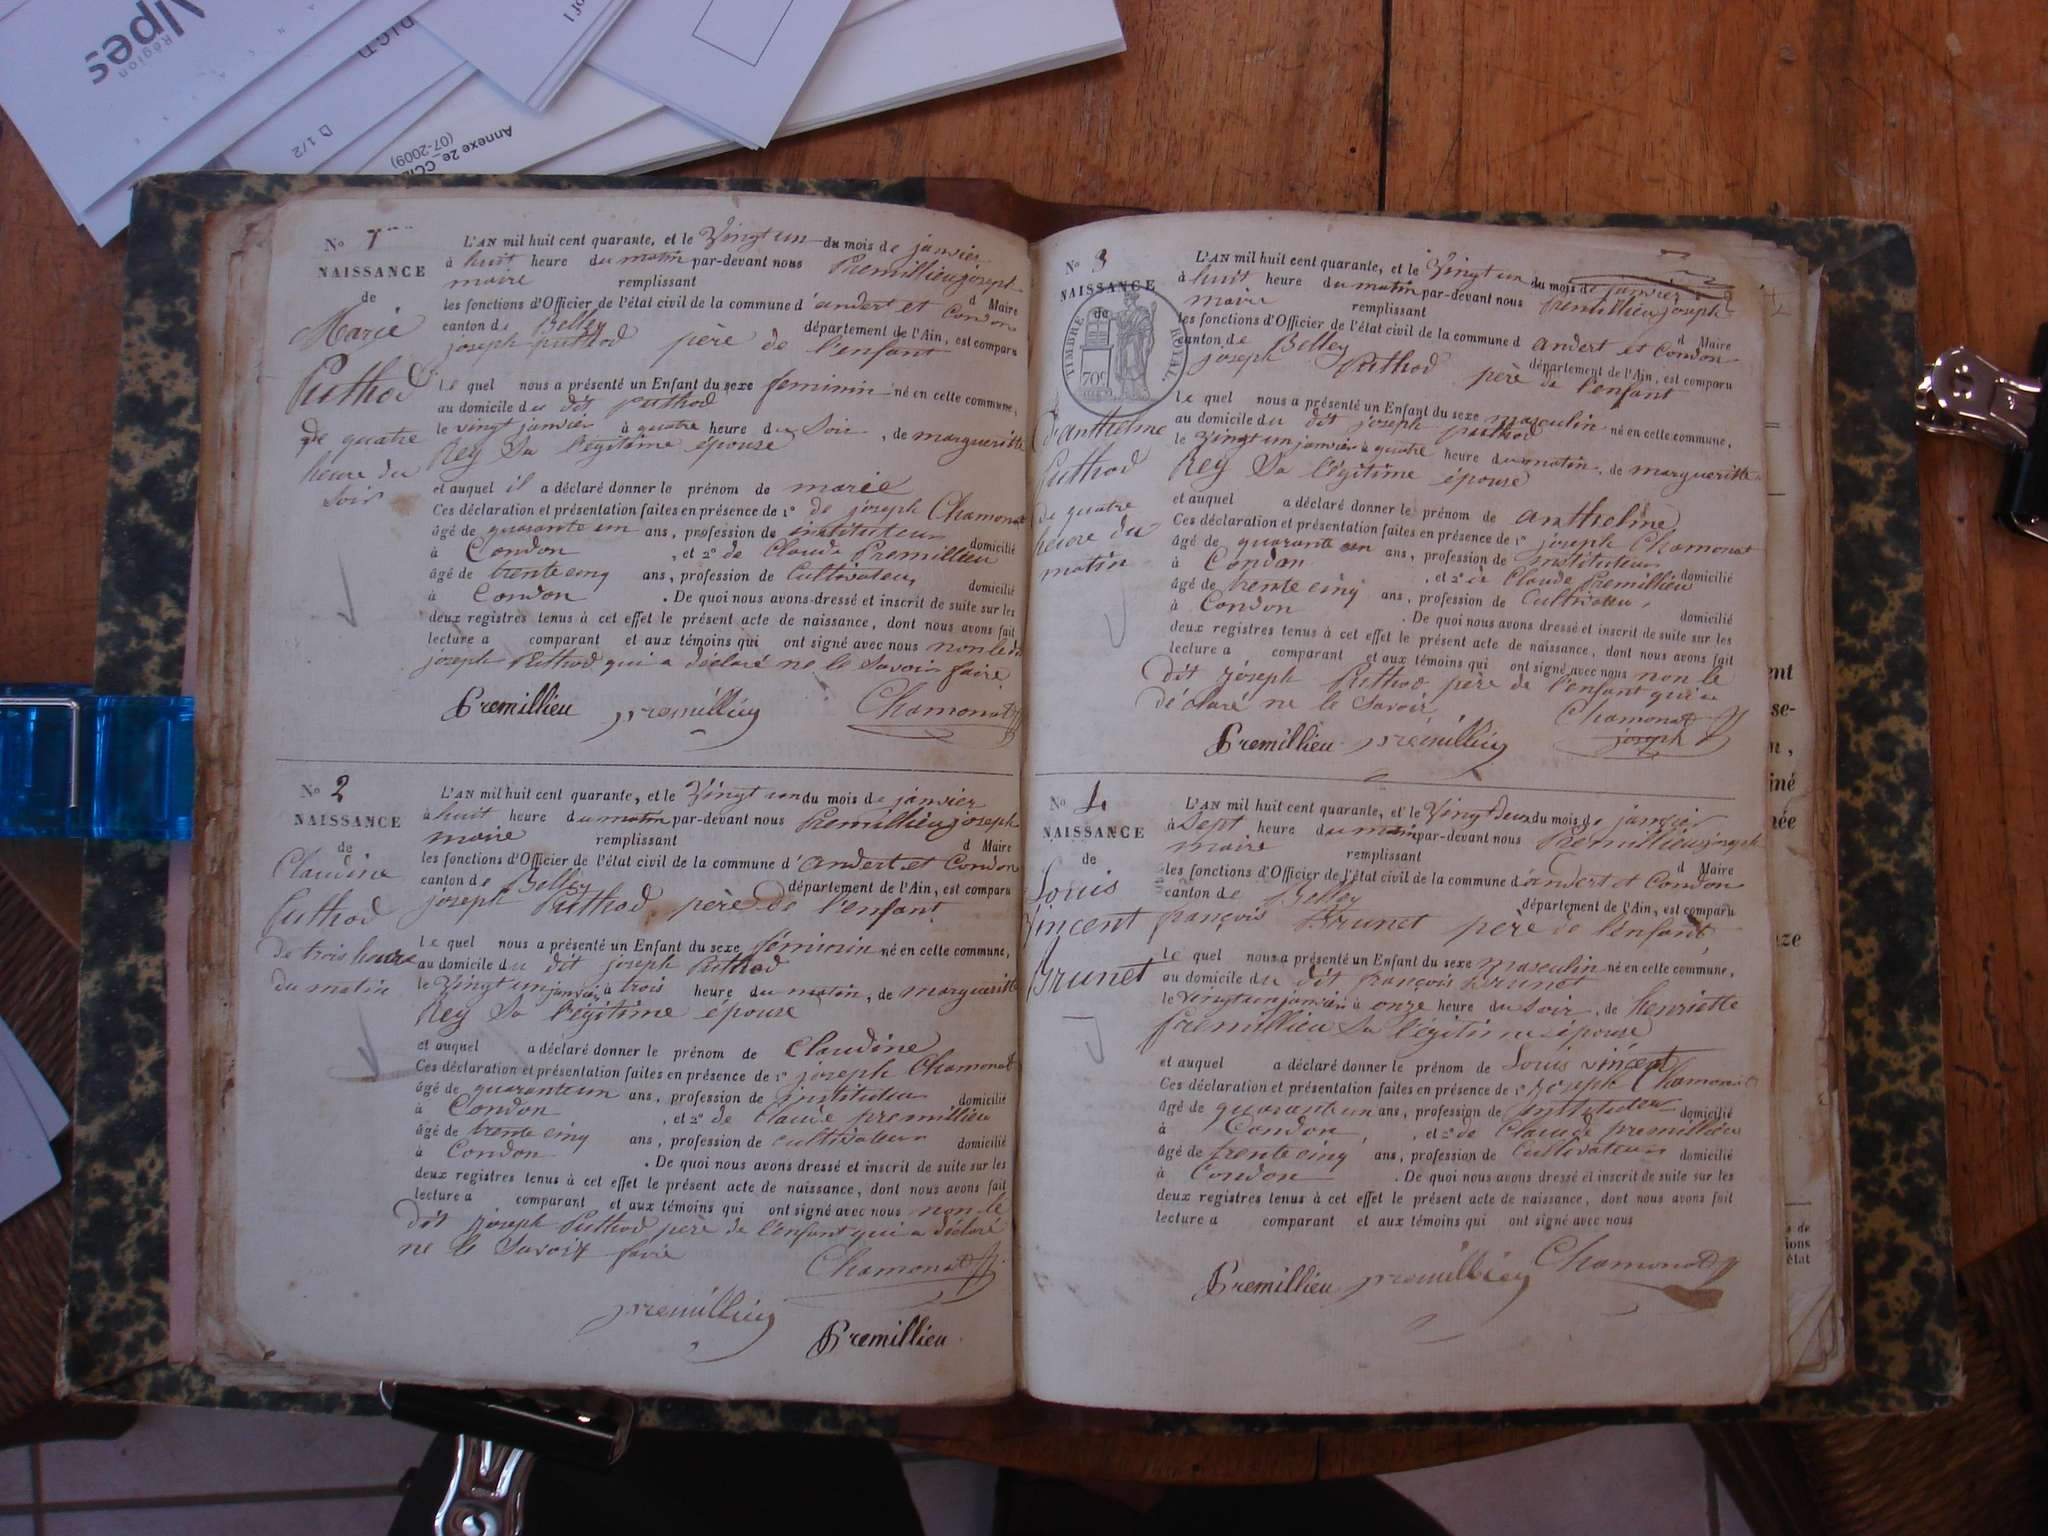 Alpes
Région
D 1/2
Annexe 2e
(07-2009)
No 1
NAISSANCE
de
Marie
Puthod
de quatre
heure du
soir
L'AN mil huit cent quarante, et le Vingt un du mois de janvier
à huit heure du matin par-devant nous Premillieu joseph
maire remplissant d Maire
les fonctions d'Officier de l'état civil de la commune d'andert et Condon
canton de Belley département de l'Ain, est comparu
joseph puthod père de l'enfant
Le quel nous a présenté un Enfant du sexe feminin né en cette commune,
au domicile du dit puthod
le vingt janvier à quatre heure du soir, de margueritte
Rey Sa légitime épouse
et auquel il a déclaré donner le prénom de marie
Ces déclaration et présentation faites en présence de 1° de joseph Chamonat
âgé de quarante un ans, profession de instituteur domicilié
à Condon, et 2° de Claude Premillieu
âgé de trente cinq ans, profession de Cultivateur domicilié
à Condon. De quoi nous avons dressé et inscrit de suite sur les
deux registres tenus à cet effet le présent acte de naissance, dont nous avons fait
lecture a comparant et aux témoins qui ont signé avec nous non le dit
joseph Puthod qui a déclaré ne le Savoir faire
Premillieu premillieu Chamonat
No 2
NAISSANCE
de
Claudine
Puthod
de trois heure
du matin
L'AN mil huit cent quarante, et le Vingt un du mois de janvier
à huit heure du matin par-devant nous Premillieu joseph
maire remplissant d Maire
les fonctions d'Officier de l'état civil de la commune d'andert et Condon
canton de Belley département de l'Ain, est comparu
joseph Puthod père de l'enfant
Le quel nous a présenté un Enfant du sexe féminin né en cette commune,
au domicile du dit joseph Puthod
le Vingt un janvier à trois heure du matin, de margueritte
Rey Sa légitime épouse
et auquel a déclaré donner le prénom de Claudine
Ces déclaration et présentation faites en présence de 1° joseph Chamonat
âgé de quarante un ans, profession de instituteur domicilié
à Condon, et 2° de Claude premillieu
âgé de trente cinq ans, profession de cultivateur domicilié
à Condon. De quoi nous avons dressé et inscrit de suite sur les
deux registres tenus à cet effet le présent acte de naissance, dont nous avons fait
lecture a comparant et aux témoins qui ont signé avec nous non le
dit joseph Puthod père de l'enfant qui a déclaré
ne le Savoir faire
Chamonat
premillieu
Premillieu
No 3
NAISSANCE
de
TIMBRE ROYAL
70c
d'antheline
Puthod
de quatre
heure du
matin
L'AN mil huit cent quarante, et le Vingt un du mois de janvier
à huit heure du matin par-devant nous Premillieu joseph
maire remplissant d Maire
les fonctions d'Officier de l'état civil de la commune d andert et Condon
canton de Belley département de l'Ain, est comparu
joseph Puthod père de l'enfant
Le quel nous a présenté un Enfant du sexe masculin né en cette commune,
au domicile du dit joseph puthod
le Vingt un janvier à quatre heure du matin, de margueritte
Rey Sa légitime épouse
et auquel a déclaré donner le prénom de antheline
Ces déclaration et présentation faites en présence de 1° joseph Chamonat
âgé de quarante un ans, profession de instituteur domicilié
à Condon, et 2° de Claude Premillieu
âgé de trente cinq ans, profession de Cultivateur domicilié
à Condon. De quoi nous avons dressé et inscrit de suite sur les
deux registres tenus à cet effet le présent acte de naissance, dont nous avons fait
lecture a comparant et aux témoins qui ont signé avec nous non le
dit joseph Puthod père de l'enfant qui a
déclaré ne le Savoir
Premillieu premillieu Chamonat
joseph
No 4
NAISSANCE
de
Louis
Vincent
Brunet
L'AN mil huit cent quarante, et le Vingt deux du mois de janvier
à Sept heure du matin par-devant nous Premillieu joseph
maire remplissant d Maire
les fonctions d'Officier de l'état civil de la commune d'andert et Condon
canton de Belley département de l'Ain, est comparu
françois Brunet père de l'enfant
Le quel nous a présenté un Enfant du sexe masculin né en cette commune,
au domicile du dit françois Brunet
le vingt un janvier à onze heure du soir, de henriette
Premillieu Sa légitime épouse
et auquel a déclaré donner le prénom de Louis vincent
Ces déclaration et présentation faites en présence de 1° joseph Chamonat
âgé de quarante un ans, profession de instituteur domicilié
à Condon, et 2° de Claude premillieu
âgé de trente cinq ans, profession de Cultivateur domicilié
à Condon. De quoi nous avons dressé et inscrit de suite sur les
deux registres tenus à cet effet le présent acte de naissance, dont nous avons fait
lecture a comparant et aux témoins qui ont signé avec nous
Premillieu premillieu Chamonat